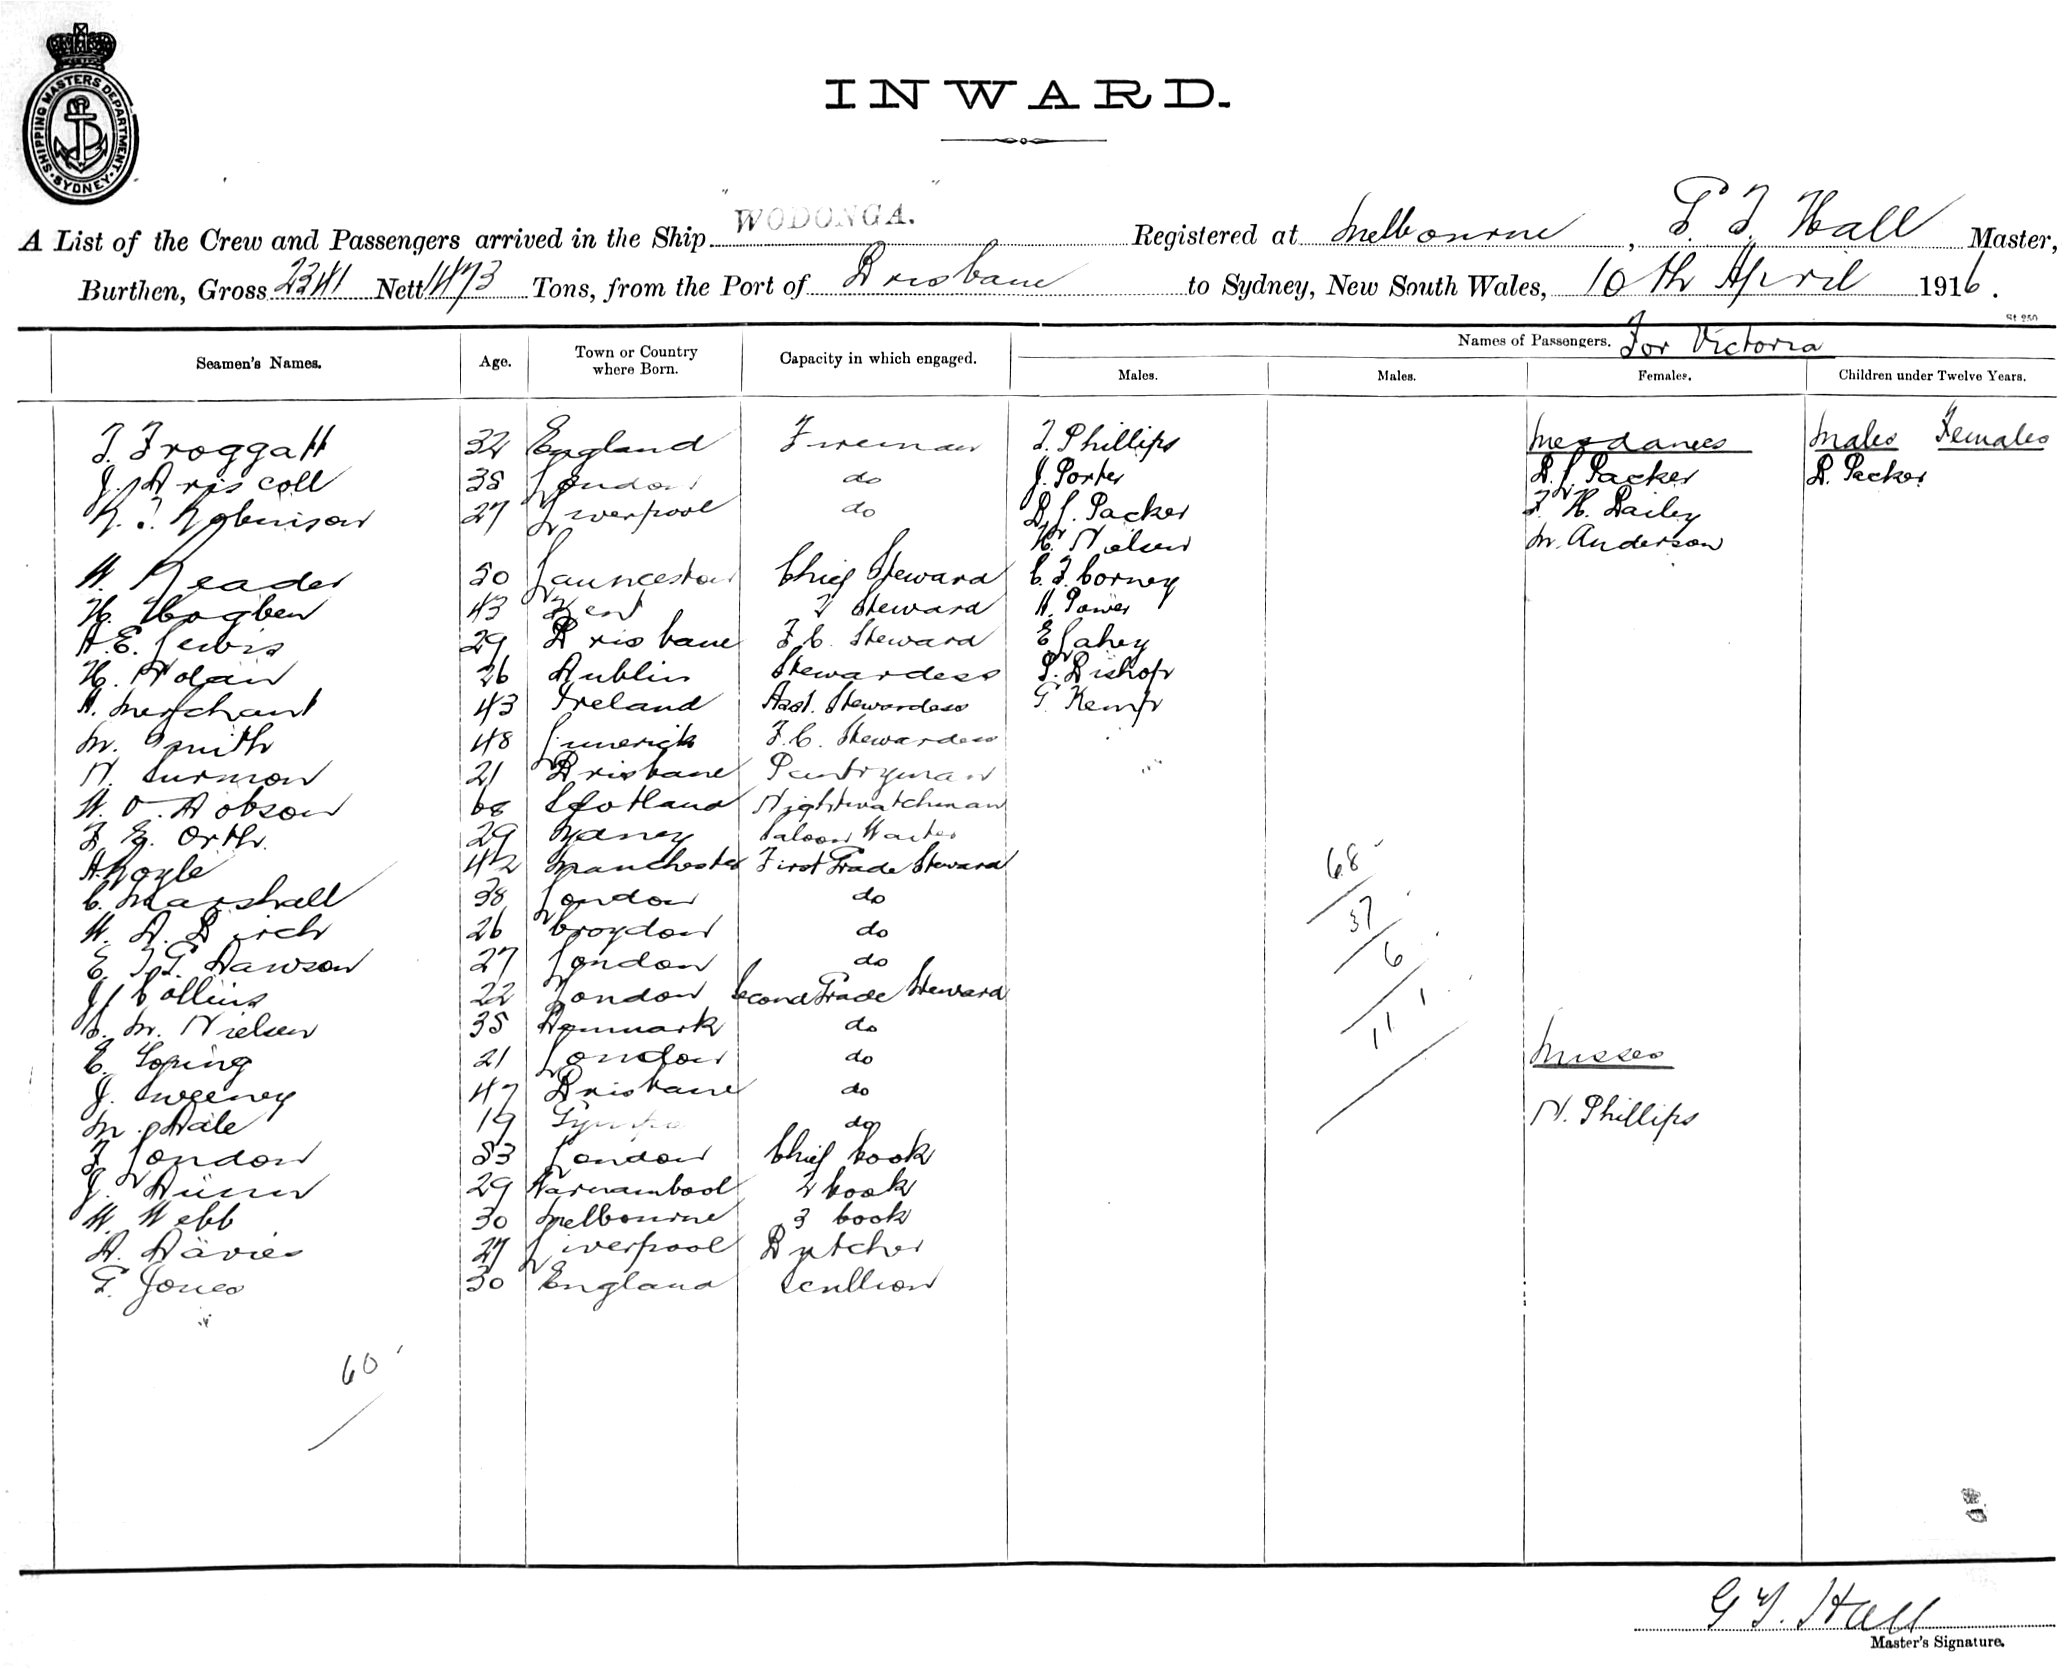 SHIPPING MASTERS DEPARTMENT. SYDNEY
INWARD.
A List of the Crew and Passengers arrived in the Ship "WODONGA." Registered at Melbourne, G. T. Hall Master,
Burthen, Gross 2341 Nett 1473 Tons, from the Port of Brisbane to Sydney, New South Wales, 10th April 1916.
St 250
Seamen's Names. Age. Town or Country where Born. Capacity in which engaged. Names of Passengers. For Victoria
Males. Males. Females. Children under Twelve Years.
T. Froggatt 32 England Fireman T. Phillips Mesdames Males Females
J. Driscoll 38 London do J. Porter D. L. Packer D. Packer
Robinson 27 Liverpool do D. L. Packer F. H. Bailey
H. Nielsen M. Anderson
W. Reader 50 Launceston Chief Steward C. F. Corney
H. Hogben 43 Kent 2 Steward H. Power
A. E. Lewis 29 Brisbane F. C. Steward E Lahey
H. Nolan 26 Dublin Stewardess P. Bishop
A. Merchant 43 Ireland Asst. Stewardess G. Kemp
M. Smith 48 Limerick F. C. Stewardess
N. Surmon 21 Brisbane Pantryman
W. O. Dobson 68 Scotland Nightwatchman
F. G. Orth 29 Sydney Saloon Waiter
A. Coyle 42 Manchester First Grade Steward
C. Marshall 38 London do
W. A. Birch 26 Croydon do
E. T. G. Dawson 27 London do
J. Collins 22 London Second Grade Steward
C. M. Nielsen 35 Denmark do
E. Goring 21 London do
J. Sweeney 47 Brisbane do
M. Dale 19 Gympie do
F. London 53 London Chief Cook
J. Dunn 29 Warrnambool 2 Cook
W. Webb 30 Melbourne 3 Cook
D. Davies 27 Liverpool Butcher
G. Jones 30 England Scullion
68
37
6
1
11
Misses
N. Phillips
60
G T. Hall
Master's Signature.